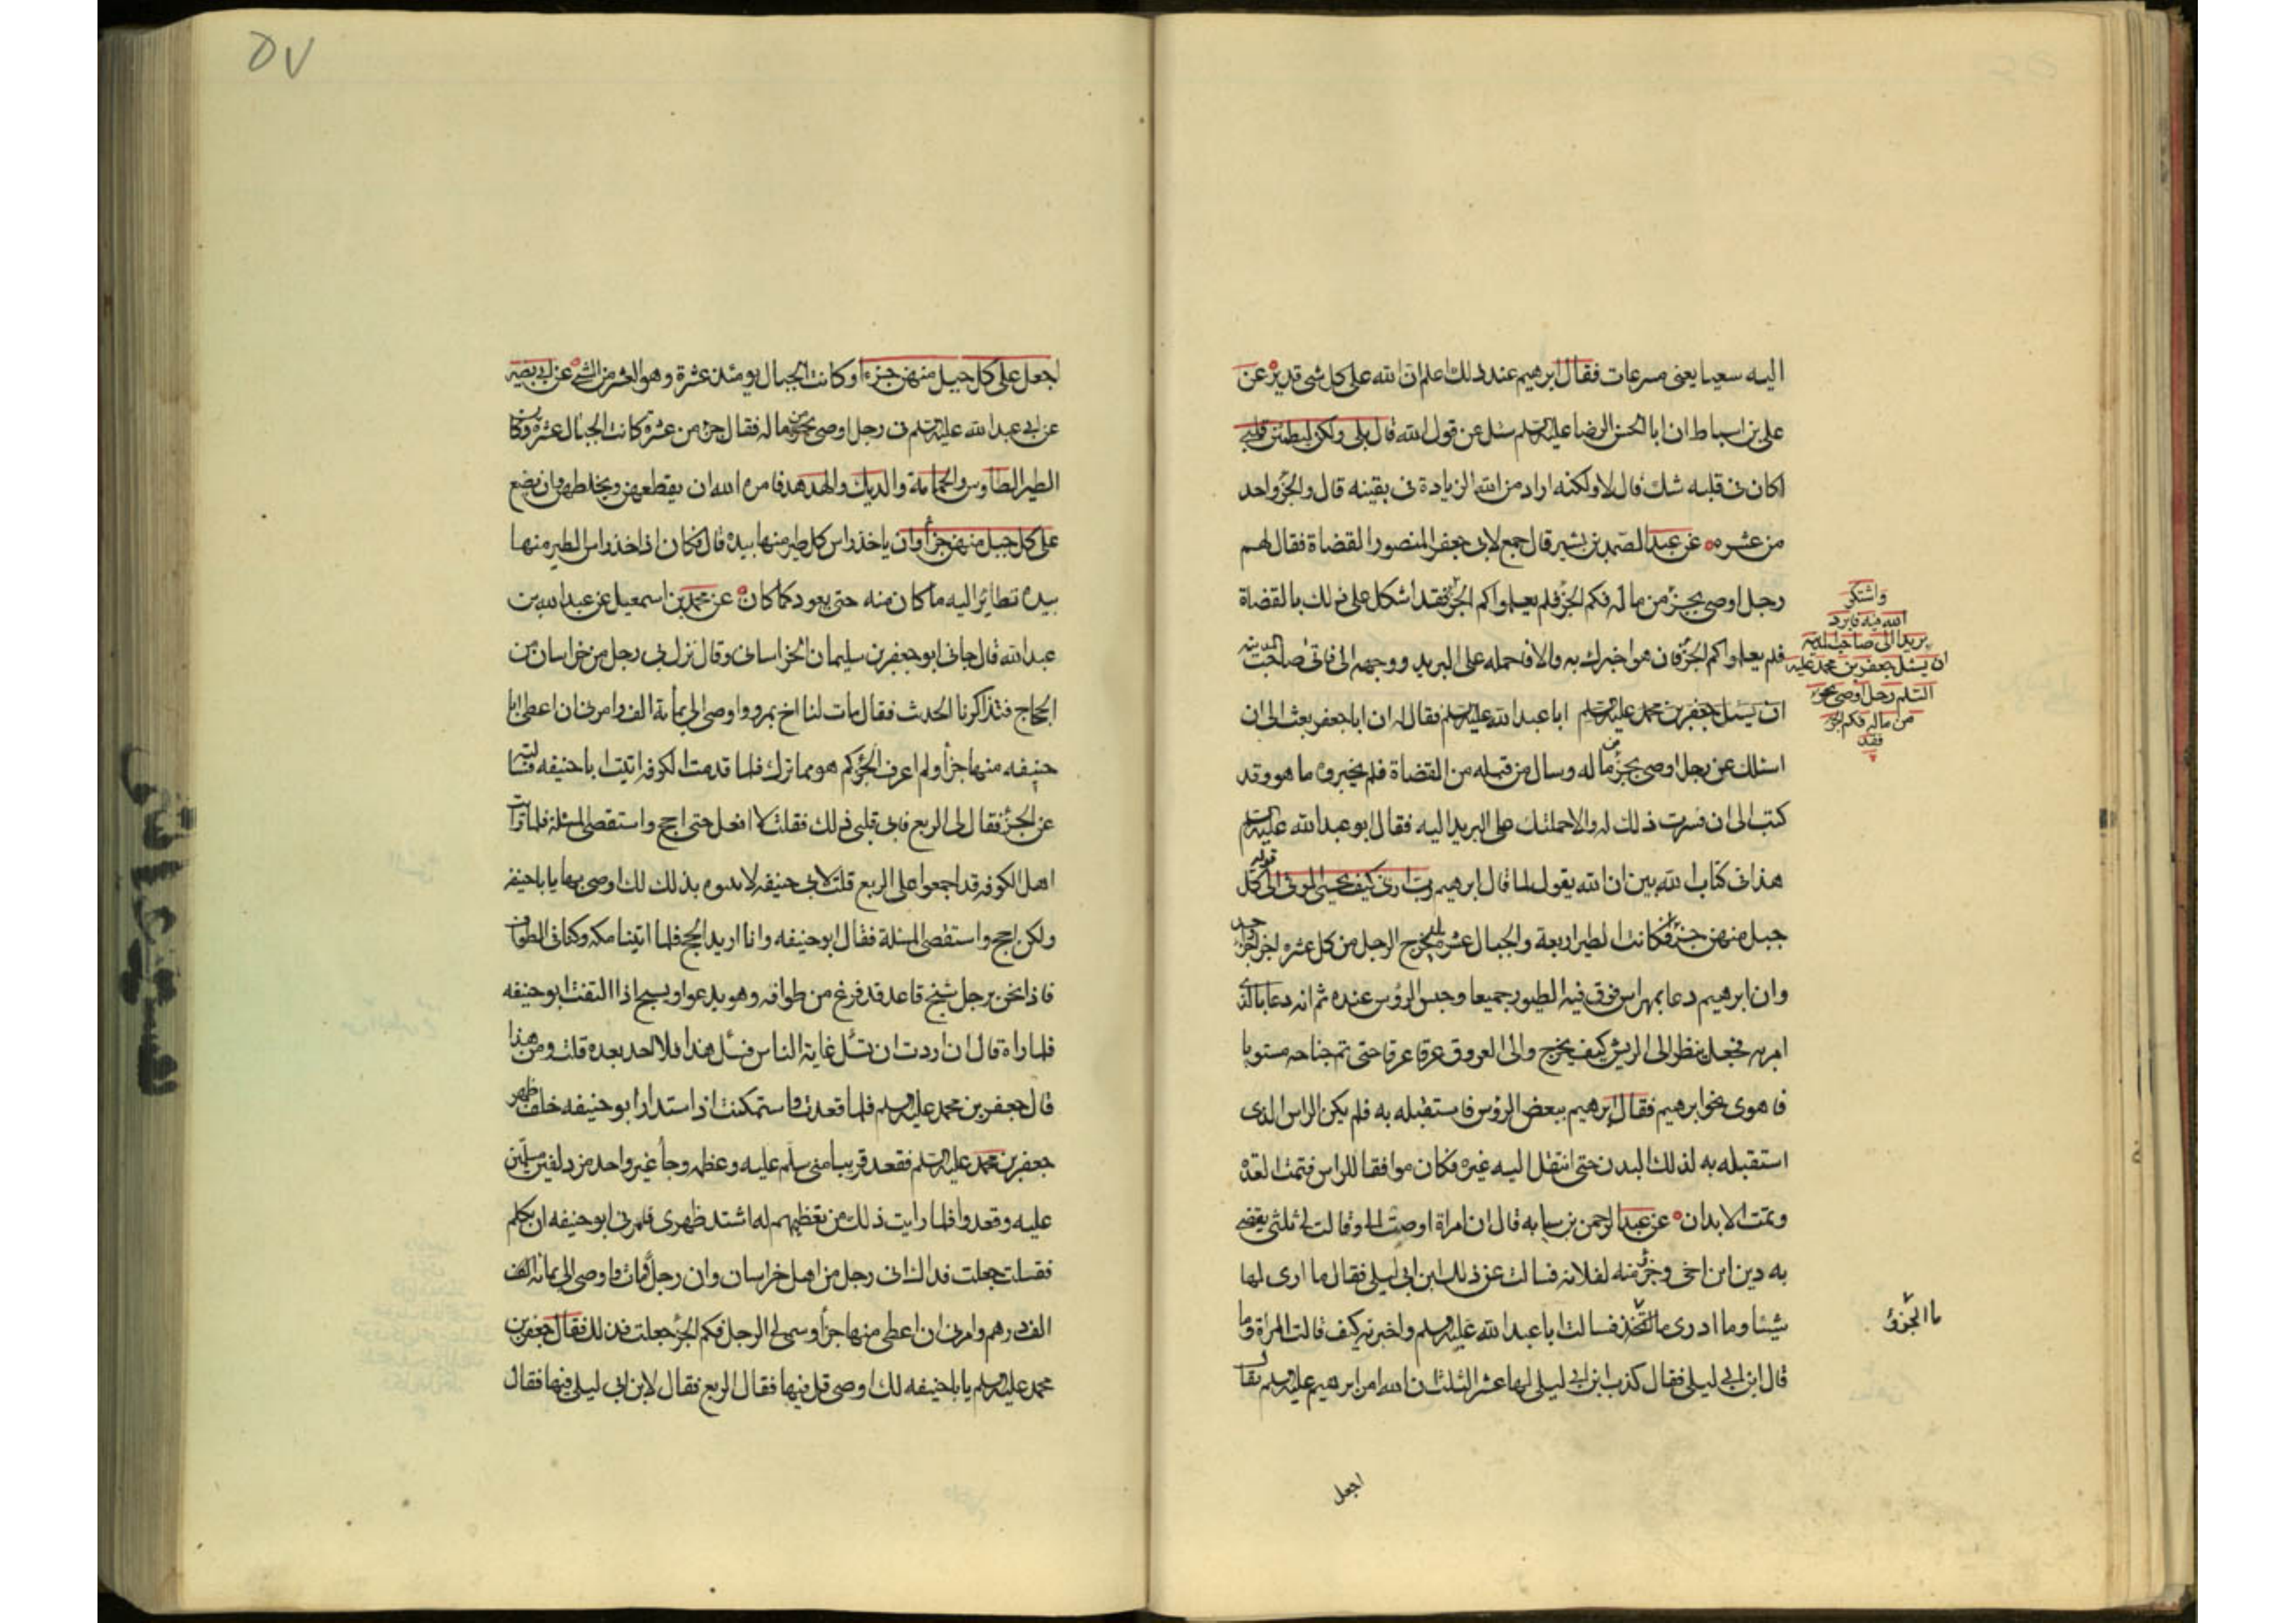 اليه سعيا يعنى مسرعات فقال ابرهيم عند ذلك اعلم ان الله على كل شى قدير عن
على بن اسباط ان ابا الحسن الرضا عليه السلم سئل عن قول الله قال بلى ولكن ليطمئن قلبى
اكان فى قلبه شك قال لا ولكنه اراد من الله الزيادة فى يقينه قال والجزؤ واحد
من عشره عن عبد الصمد بن بشير قال جمع لابى جعفر المنصور القضاة فقال لهم
رجل اوصى بجزؤ من ماله فكم الجزؤ فلم يعلموا كم الجزؤ فقد اشكل على ذلك بالقضاة
واشتكوا
اليه فيه فابرد
بريدا الى صاحب المدينه
ان يسئل جعفر بن محمد عليه
السلم رجل اوصى بجزؤ
من ماله فكم الجزؤ
فقد
فلم يعلموا كم الجزؤ فان هو اخبرك به والا فاحمله على البريد ووجهه الى فاتى صاحب المدينه
ان يسئل جعفر بن محمد عليه السلم ابا عبد الله عليه السلم فقال له ان ابا جعفر بعث الى ان
اسئلك عن رجل اوصى بجزؤ من ماله وسال من قبله من القضاة فلم يخبروه ما هو وقد
كتب الى ان فسرت ذلك له والا حملتك على البريد اليه فقال ابو عبد الله عليه السلم
هذا فى كتاب الله بين ان الله يقول لما قال ابرهيم رب ارنى كيف تحيى الموتى الى قوله كل
جبل منهن جزؤ فكانت الطير اربعة والجبال عشرة يخرج الرجل من كل عشره اجزا جزؤ واحد
وان ابرهيم دعا بمهراس فدق فيه الطيور جميعا وحبس الرؤس عنده ثم انه دعا بالذى
امر به فجعل ينظر الى الريش كيف يخرج والى العروق عرقا عرقا حتى تم جناحه مستويا
فاهوى نحو ابرهيم فقال ابرهيم ببعض الرؤس فاستقبله به فلم يكن الراس الذى
استقبله به لذلك البدن حتى انتقل اليه غيره فكان موافقا للراس فتمت العدة
وتمت الابدان عن عبد الرحمن بن سيابه قال ان امراة اوصت الى وقالت لى ثلثى يقضى
به دين ابن اخى وجزؤ منه لفلانه فسالت عن ذلك ابن ابى ليلى فقال ما ارى لها
شيئا وما ادرى ما الجزؤ فسالت ابا عبد الله عليه السلم واخبرته كيف قالت المراة وما
ما الجزؤ
قال ابن ابى ليلى فقال كذب ابن ابى ليلى لها عشر الثلث ان الله امر ابرهيم عليه السلم فقال
اجعل
٥٧
اجعل على كل جبل منهن جزءا وكانت الجبال يومئذ عشرة وهو العشر من الشى عن ابى بصير
عن ابى عبد الله عليه السلم فى رجل اوصى بجزؤ من ماله فقال جزؤ من عشرة كانت الجبال عشرة وكان
الطير الطاوس والحمامة والديك والهدهد فامره الله ان يقطعهن ويخلطهن وان يضع
على كل جبل منهن جزأ وان ياخذ راس كل طير منها بيده قال فكان اذا اخذ راس الطير منها
بيده تطاير اليه ما كان منه حتى يعود كما كان عن محمد بن اسمعيل عن عبد الله بن
عبد الله قال جائى ابو جعفر بن سليمان الخراسانى وقال نزل بى رجل من خراسان من
الحجاج فتذاكرنا الحديث فقال مات لنا اخ بمرو واوصى الى بمائة الف وامرنى ان اعطى ابا
حنيفه منها جزأ ولم اعرف الجزؤ كم هو مما ترك فلما قدمت الكوفه اتيت ابا حنيفه فسالته
عن الجزؤ فقال لى الربع فابى قلبى ذلك فقلت لا افعل حتى احج واستقصى المسئلة فلما رايت
اهل الكوفه قد اجمعوا على الربع قلت لابى حنيفه لا سوه بذلك لك اوصى بها يا با حنيفه
ولكن احج واستقصى المسئلة فقال ابو حنيفه وانا اريد الحج فلما اتينا مكه وكنا فى الطواف
فاذا نحن برجل شيخ قاعد قد فرغ من طوافه وهو يدعوا ويسبح اذا التفت ابو حنيفه
فلما راه قال ان اردت ان تسئل غاية الناس فسئل هذا فلا احد بعده قلت ومن هذا
قال جعفر بن محمد عليه السلم فلما قعدت واستمكنت اذ استدار ابو حنيفه خلف ظهر
جعفر بن محمد عليه السلم فقعد قريبا منى سلم عليه وعظمه وجا غير واحد مزدلفين مسلمين
عليه وقعدوا فلما رايت ذلك من تعظيمهم له اشتد ظهرى فغمزنى ابو حنيفه ان تكلم
فقلت جعلت فداك انى رجل من اهل خراسان وان رجلا مات واوصى الى بمائه الف
الف درهم وامرنى ان اعطى منها جزأ وسمى لى الرجل فكم الجزؤ جعلت فداك فقال جعفر بن
محمد عليه السلم يا با حنيفه لك اوصى قل فيها فقال الربع فقال لابن ابى ليلى فيها فقال